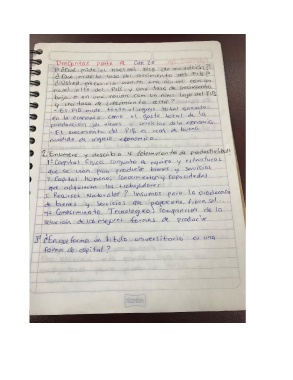 Preguntas parte 4 Cap 25
1º ¿Qué mide el
¿Qué mide la tasa de crecimiento del PIB?
¿Usted preferiría vivir en una nación con un
nivel alto del PIB y una tasa de crecimiento
baja o en una nación con un nivel bajo del PIB
y una tasa de crecimiento alta?
El PIB mide tanto el ingreso total ganado
en la economía como el gasto total de la
producción de bienes y servicios de la economía
El crecimiento del PIB es una buena
medida de
2. Enumere y describa 4 determinantes de productividad
1º Capital Físico: conjunto de equipo y estructuras
que se usan para producir bienes y servicios
2º Capital humano: conocimientos y capacidades
que adquieren los trabajadores
3º Recursos Naturales: Insumos para la producción
de bienes y servicios que proporciona
4º Conocimiento Tecnológico: comprensión de la
de las mejores formas de producir
3º ¿En qué forma un título universitario es una
forma de capital?